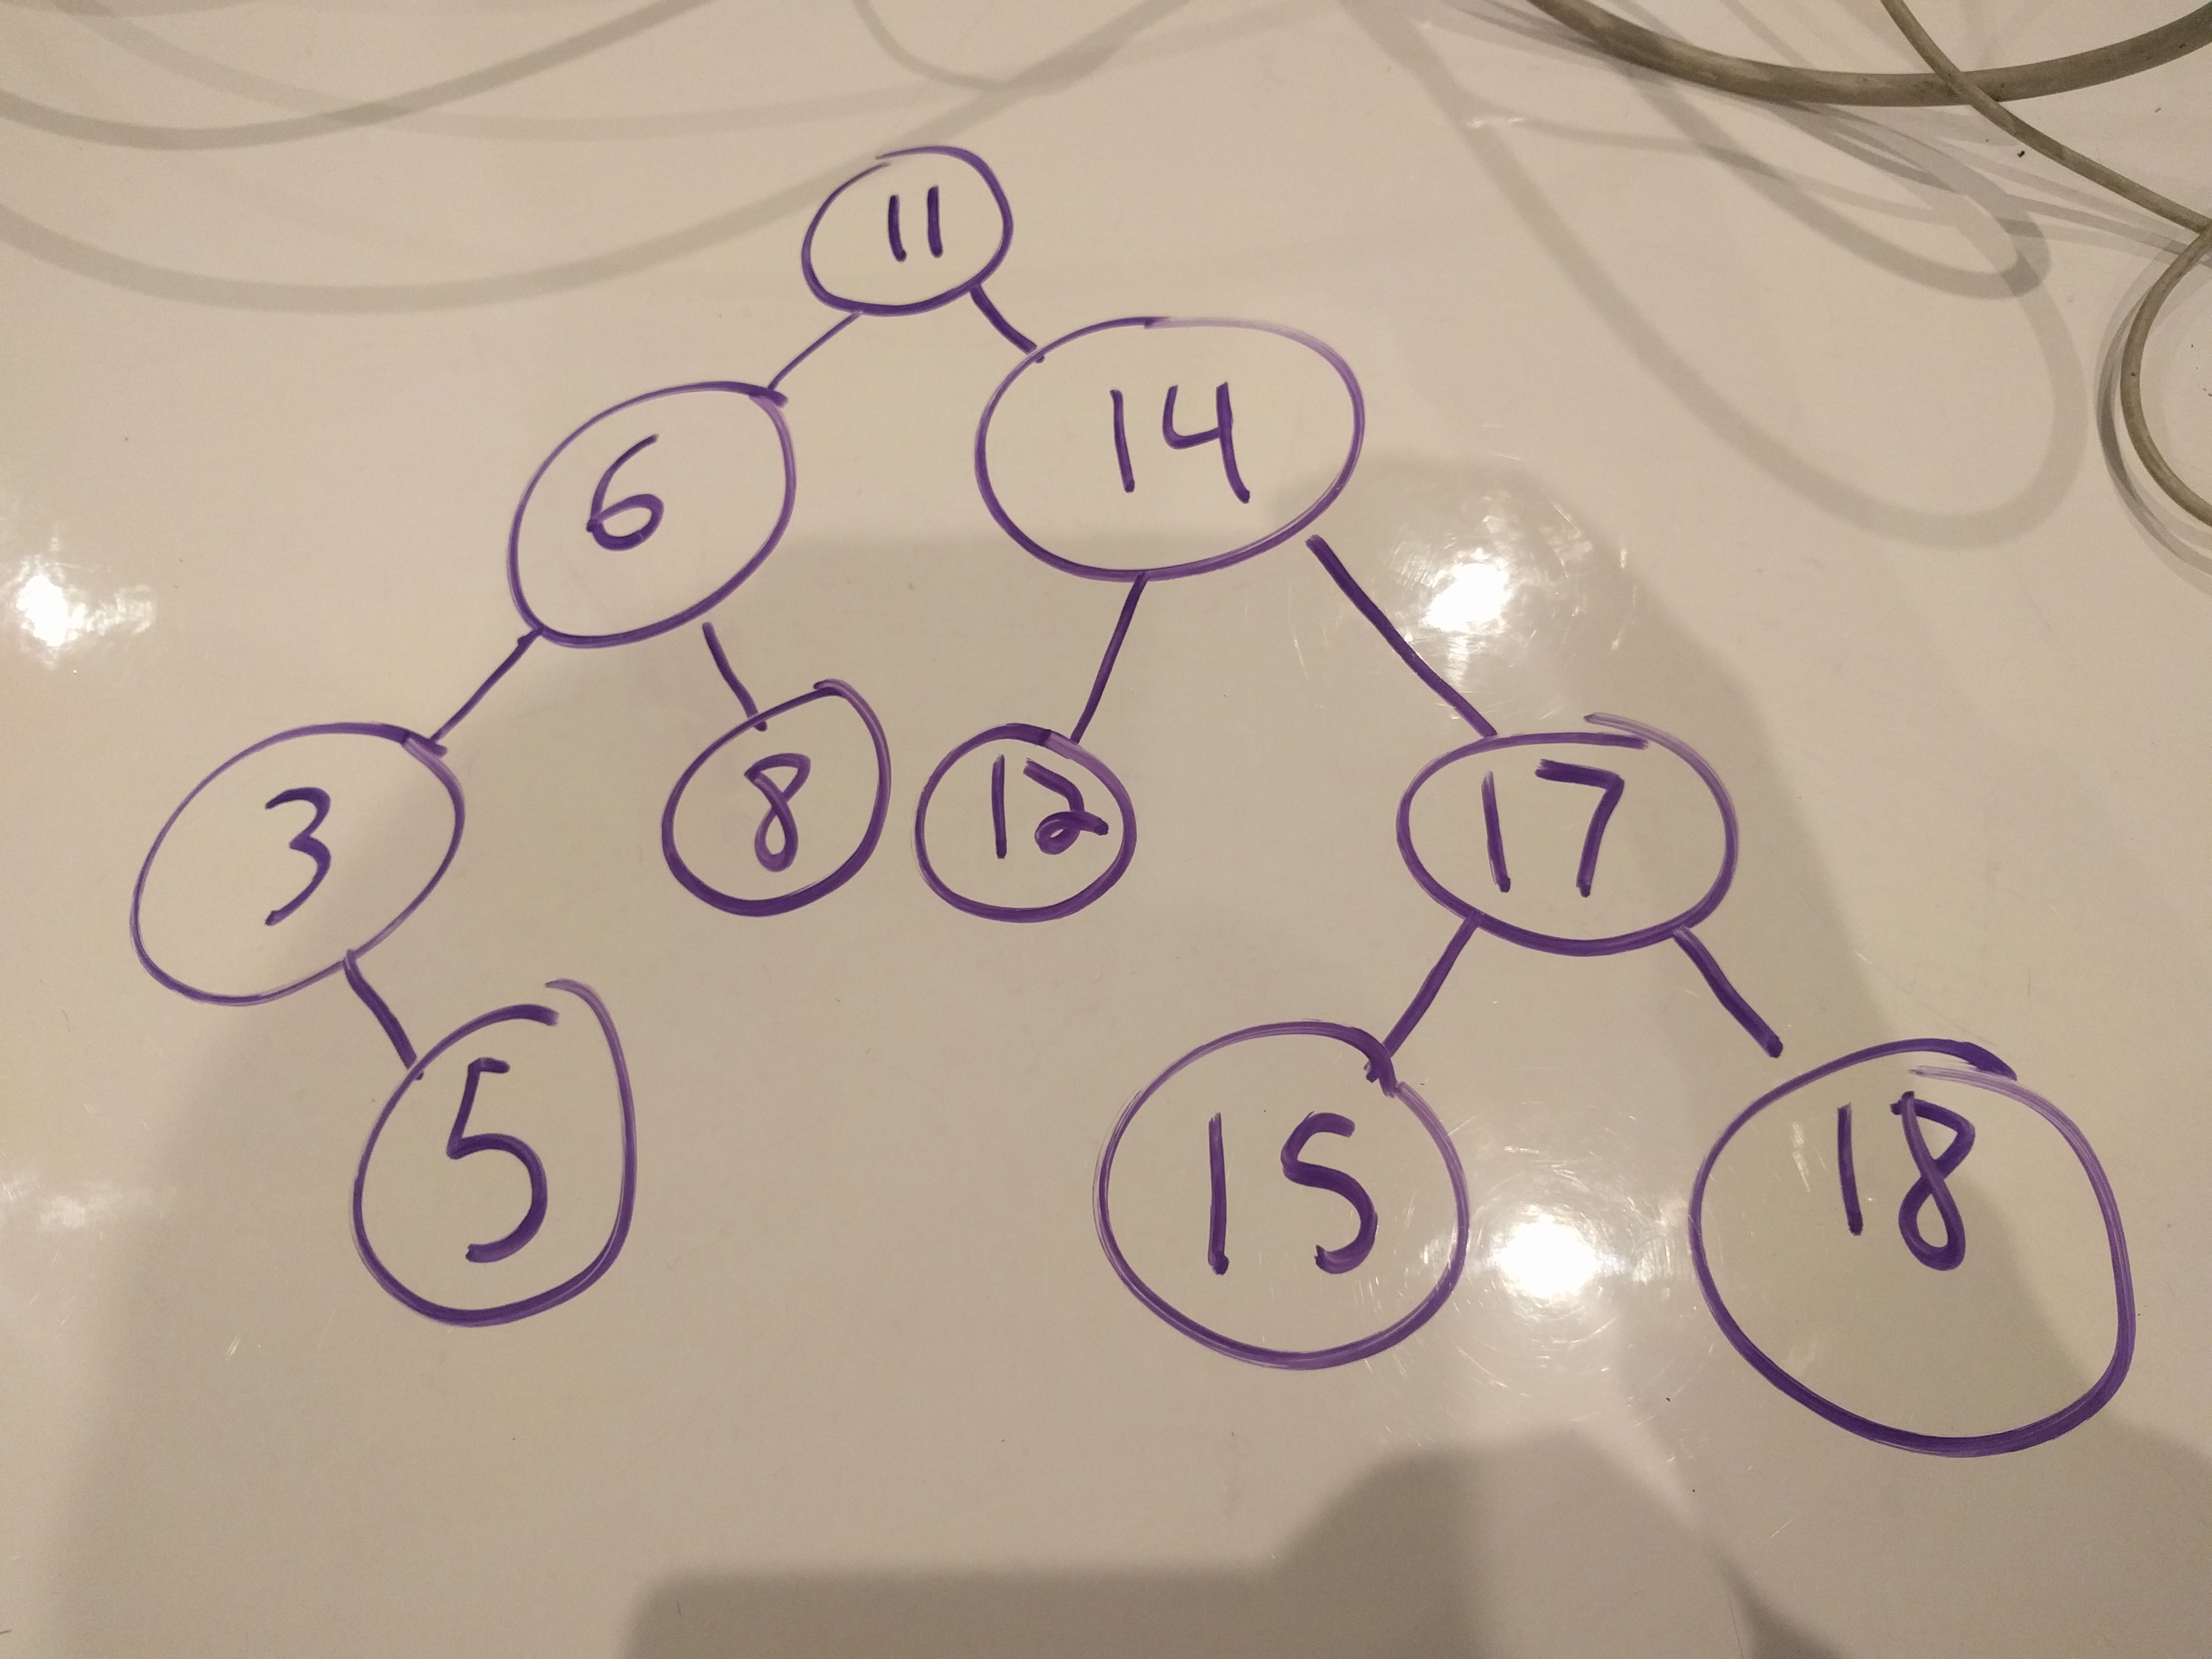 11
6 14
3 8 12 17
5 15 18